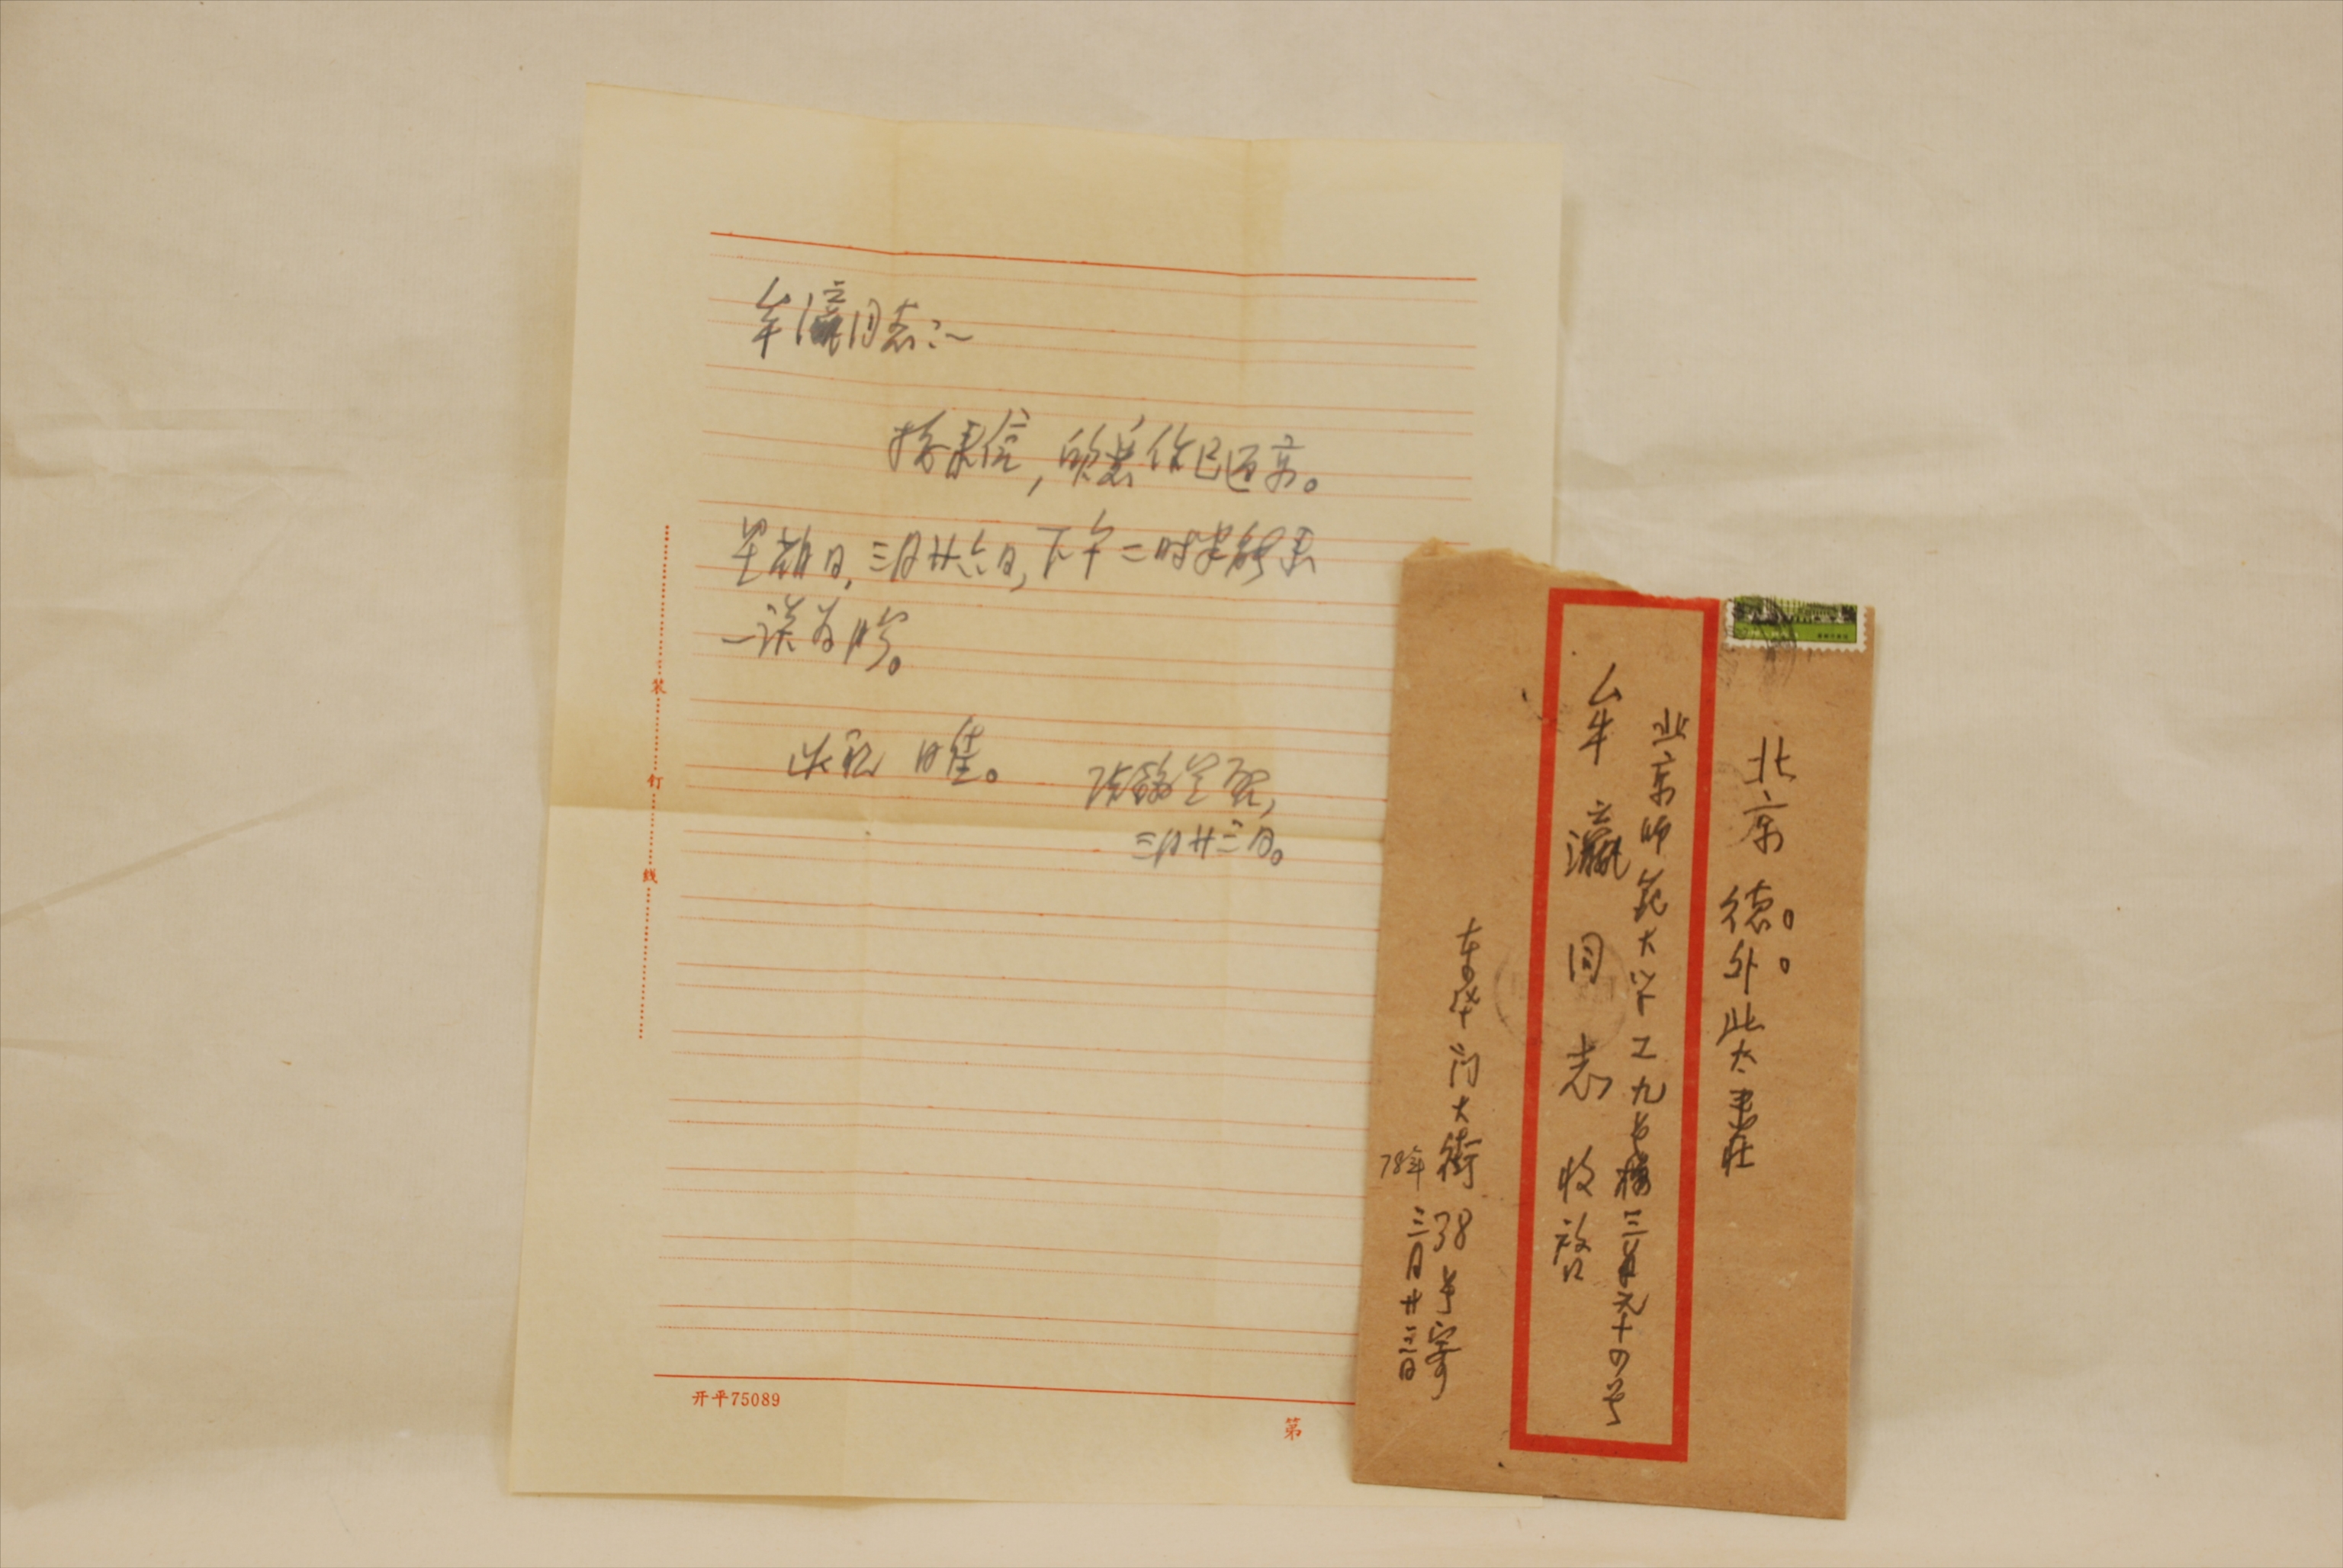 牟瀛同志:—
接来信,欣悉你已返京。
星期日,三月廿六日,下午二时半能来
一谈为盼。
此祝 日佳。
三月廿三日。
装
钉
线
开平75089
第
北京德外北太平庄
北京师范大学工九号楼三单元十四号
牟瀛同志收启
东华门大街38号寄
78年三月廿三日